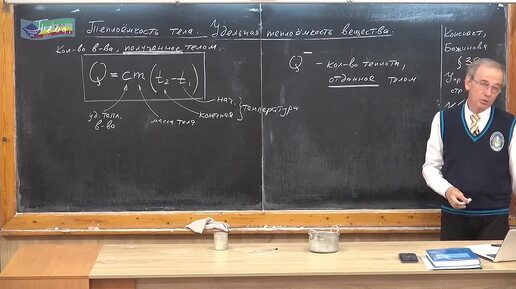 Тема
Теплоёмкость тела. Удельная теплоёмкость вещества.
Кол-во в-ва, полученное телом.
Q = cm (t₂ - t₁)
нач.
конечная } температура
уд. тепл.
в-ва
масса тела
Q⁻ - кол-во теплоты,
отданное телом
Конспект,
Божинова